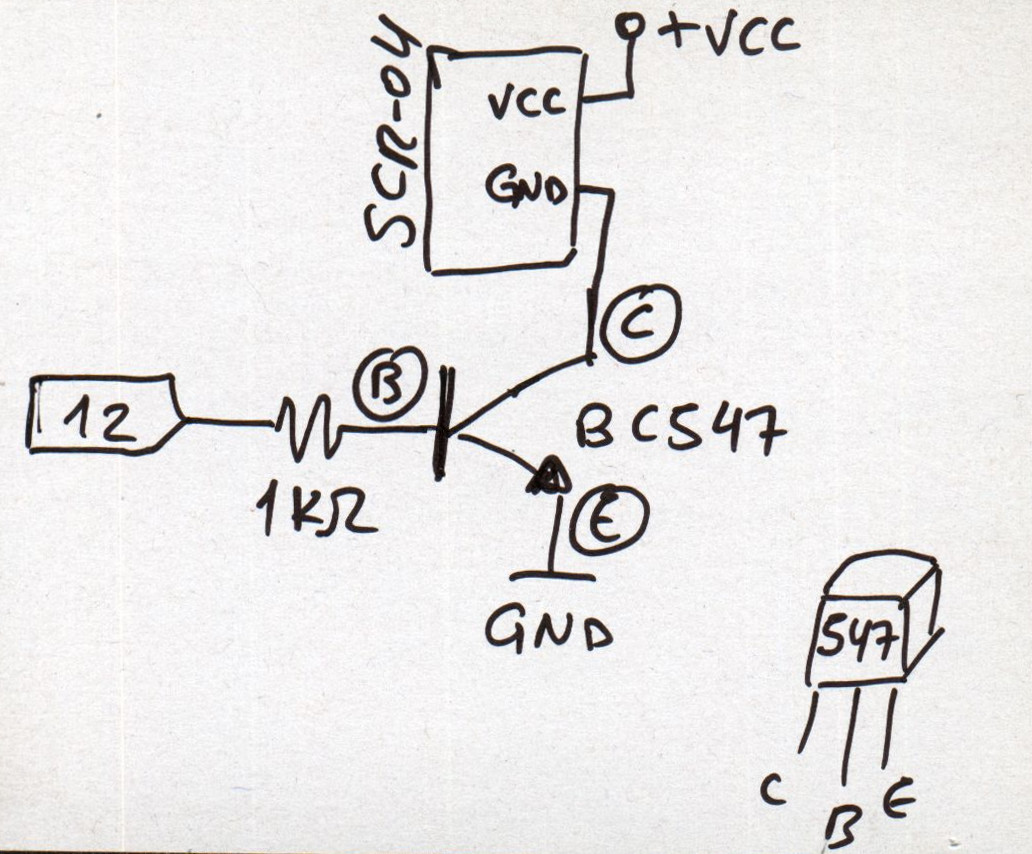 SCR-04
+VCC
VCC
GND
C
B
12
BC547
1KΩ
E
GND
547
C
B
E